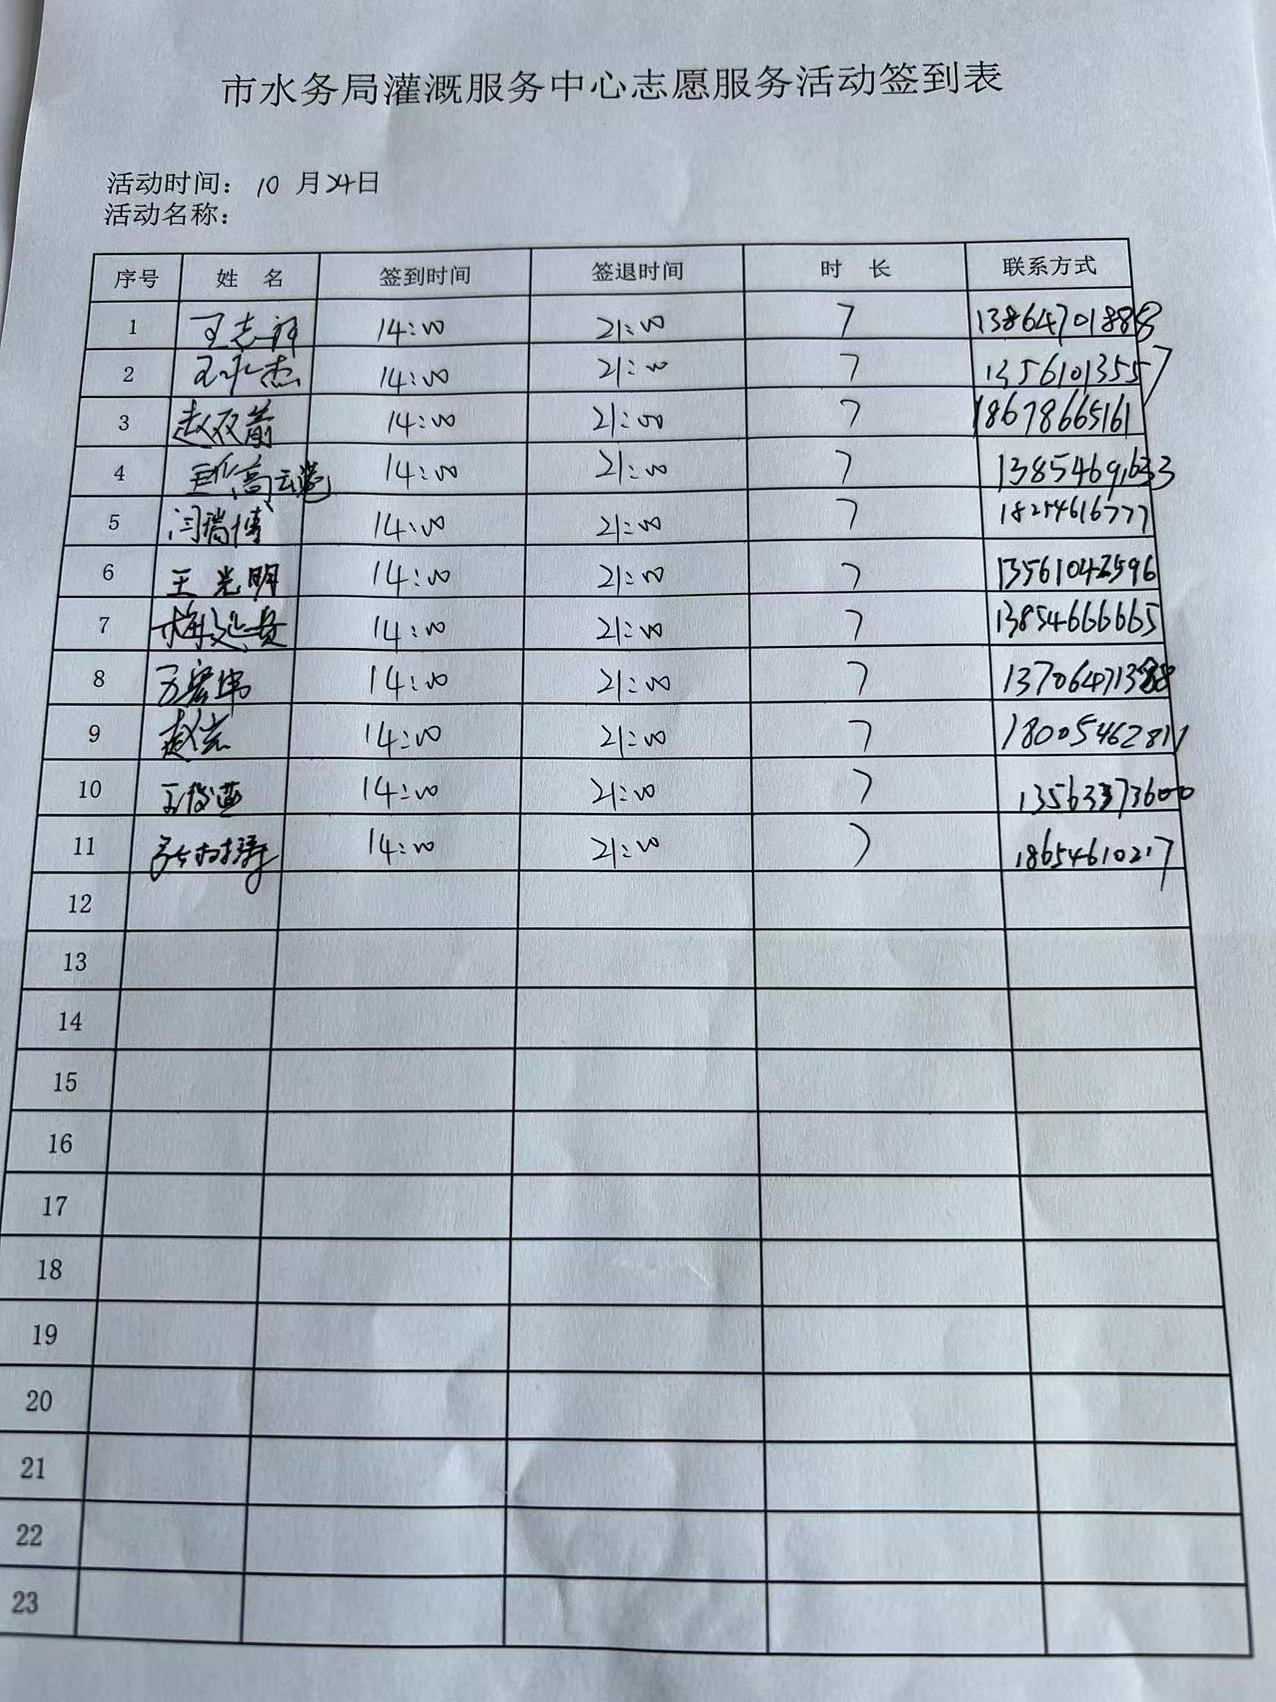 市水务局灌溉服务中心志愿服务活动签到表
活动时间：10 月24日
活动名称：
序号 姓 名 签到时间 签退时间 时 长 联系方式
1 王志祥 14:00 21:00 7 13864701888
2 王永杰 14:00 21:00 7 13561013557
3 赵双前 14:00 21:00 7 18678665161
4 高云 14:00 21:00 7 13854691633
5 闫瑞博 14:00 21:00 7 18254616777
6 王光明 14:00 21:00 7 13561042596
7 梅延贵 14:00 21:00 7 13854666665
8 万宏伟 14:00 21:00 7 13706471388
9 赵 14:00 21:00 7 18005462811
10 王 14:00 21:00 7 13563373600
11 14:00 21:00 7 18654610217
12
13
14
15
16
17
18
19
20
21
22
23